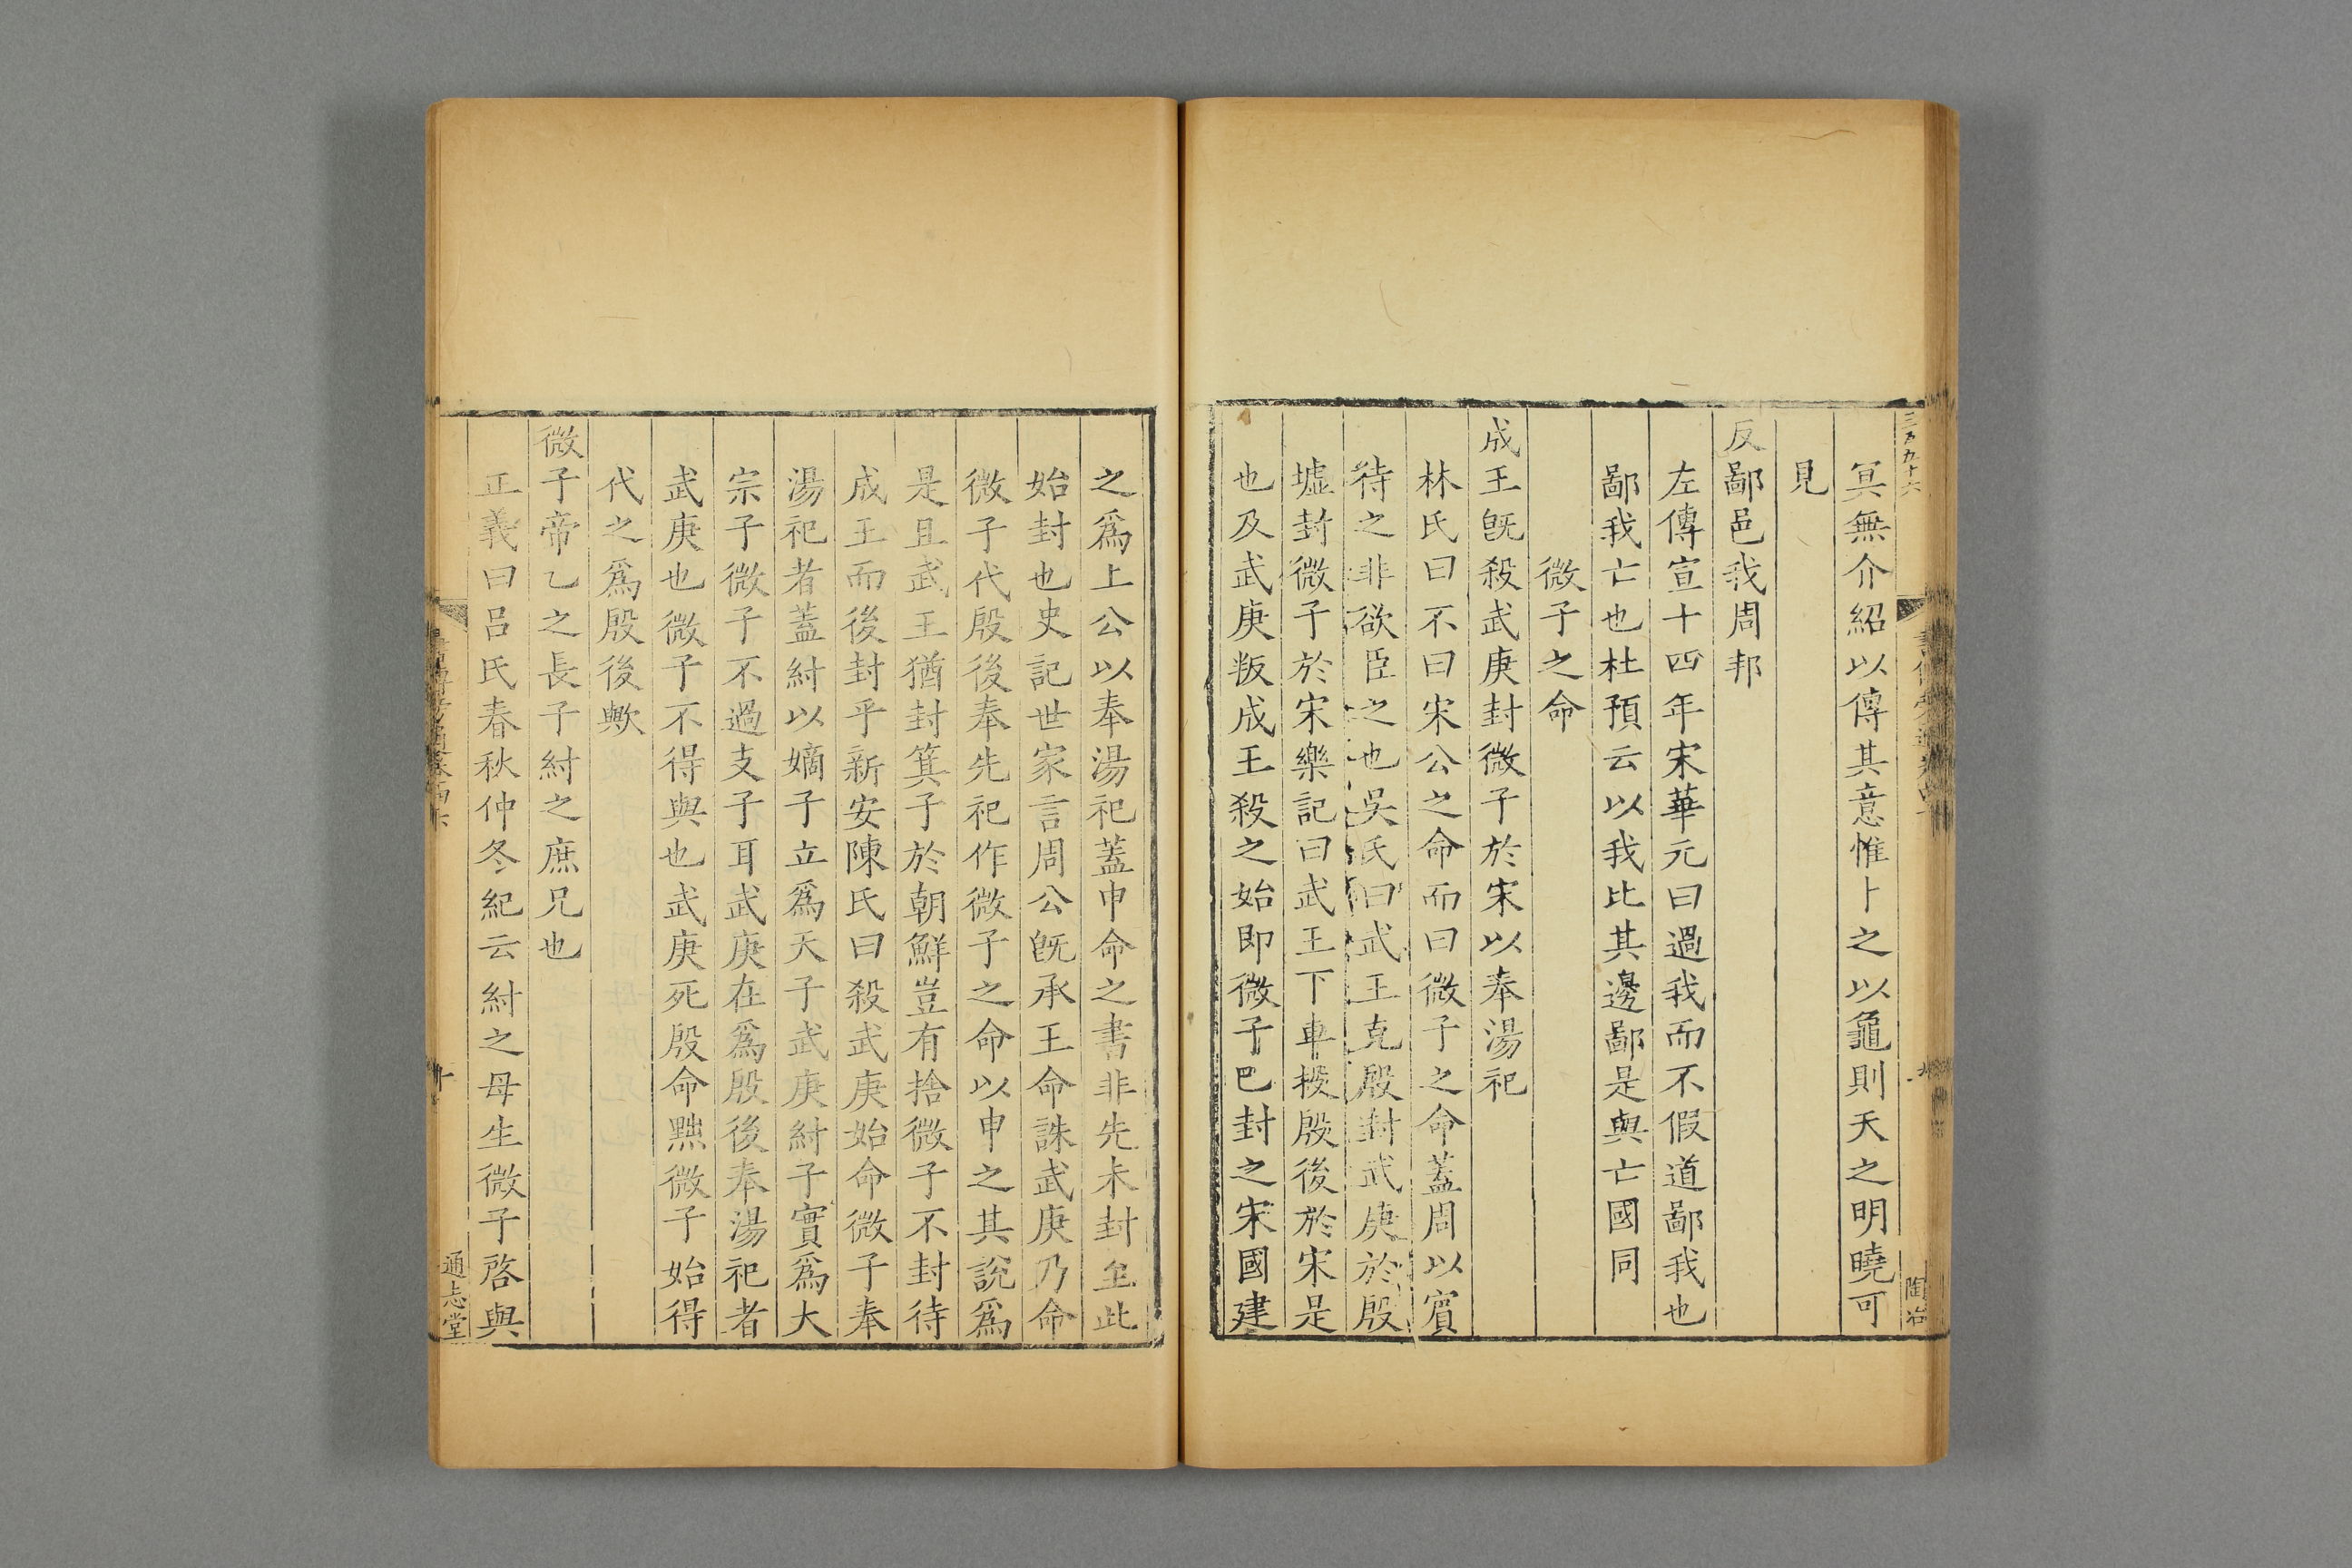 三百九十六
陶冶
冥無介紹以傳其意惟卜之以龜則天之明曉可
見
反鄙邑我周邦
左傳宣十四年宋華元曰過我而不假道鄙我也
鄙我亡也杜預云以我比其邊鄙是與亡國同
微子之命
成王旣殺武庚封微子於宋以奉湯祀
林氏曰不曰宋公之命而曰微子之命蓋周以賓
待之非欲臣之也吳氏曰武王克殷封武庚於殷
墟封微子於宋樂記曰武王下車投殷後於宋是
也及武庚叛成王殺之始即微子已封之宋國建
之爲上公以奉湯祀蓋申命之書非先未封至此
始封也史記世家言周公旣承王命誅武庚乃命
微子代殷後奉先祀作微子之命以申之其說爲
是且武王猶封箕子於朝鮮豈有捨微子不封待
成王而後封乎新安陳氏曰殺武庚始命微子奉
湯祀者蓋紂以嫡子立爲天子武庚紂子實爲大
宗子微子不過支子耳武庚在爲殷後奉湯祀者
武庚也微子不得與也武庚死殷命黜微子始得
代之爲殷後歟
微子帝乙之長子紂之庶兄也
正義曰呂氏春秋仲冬紀云紂之母生微子啓與
十
通志堂